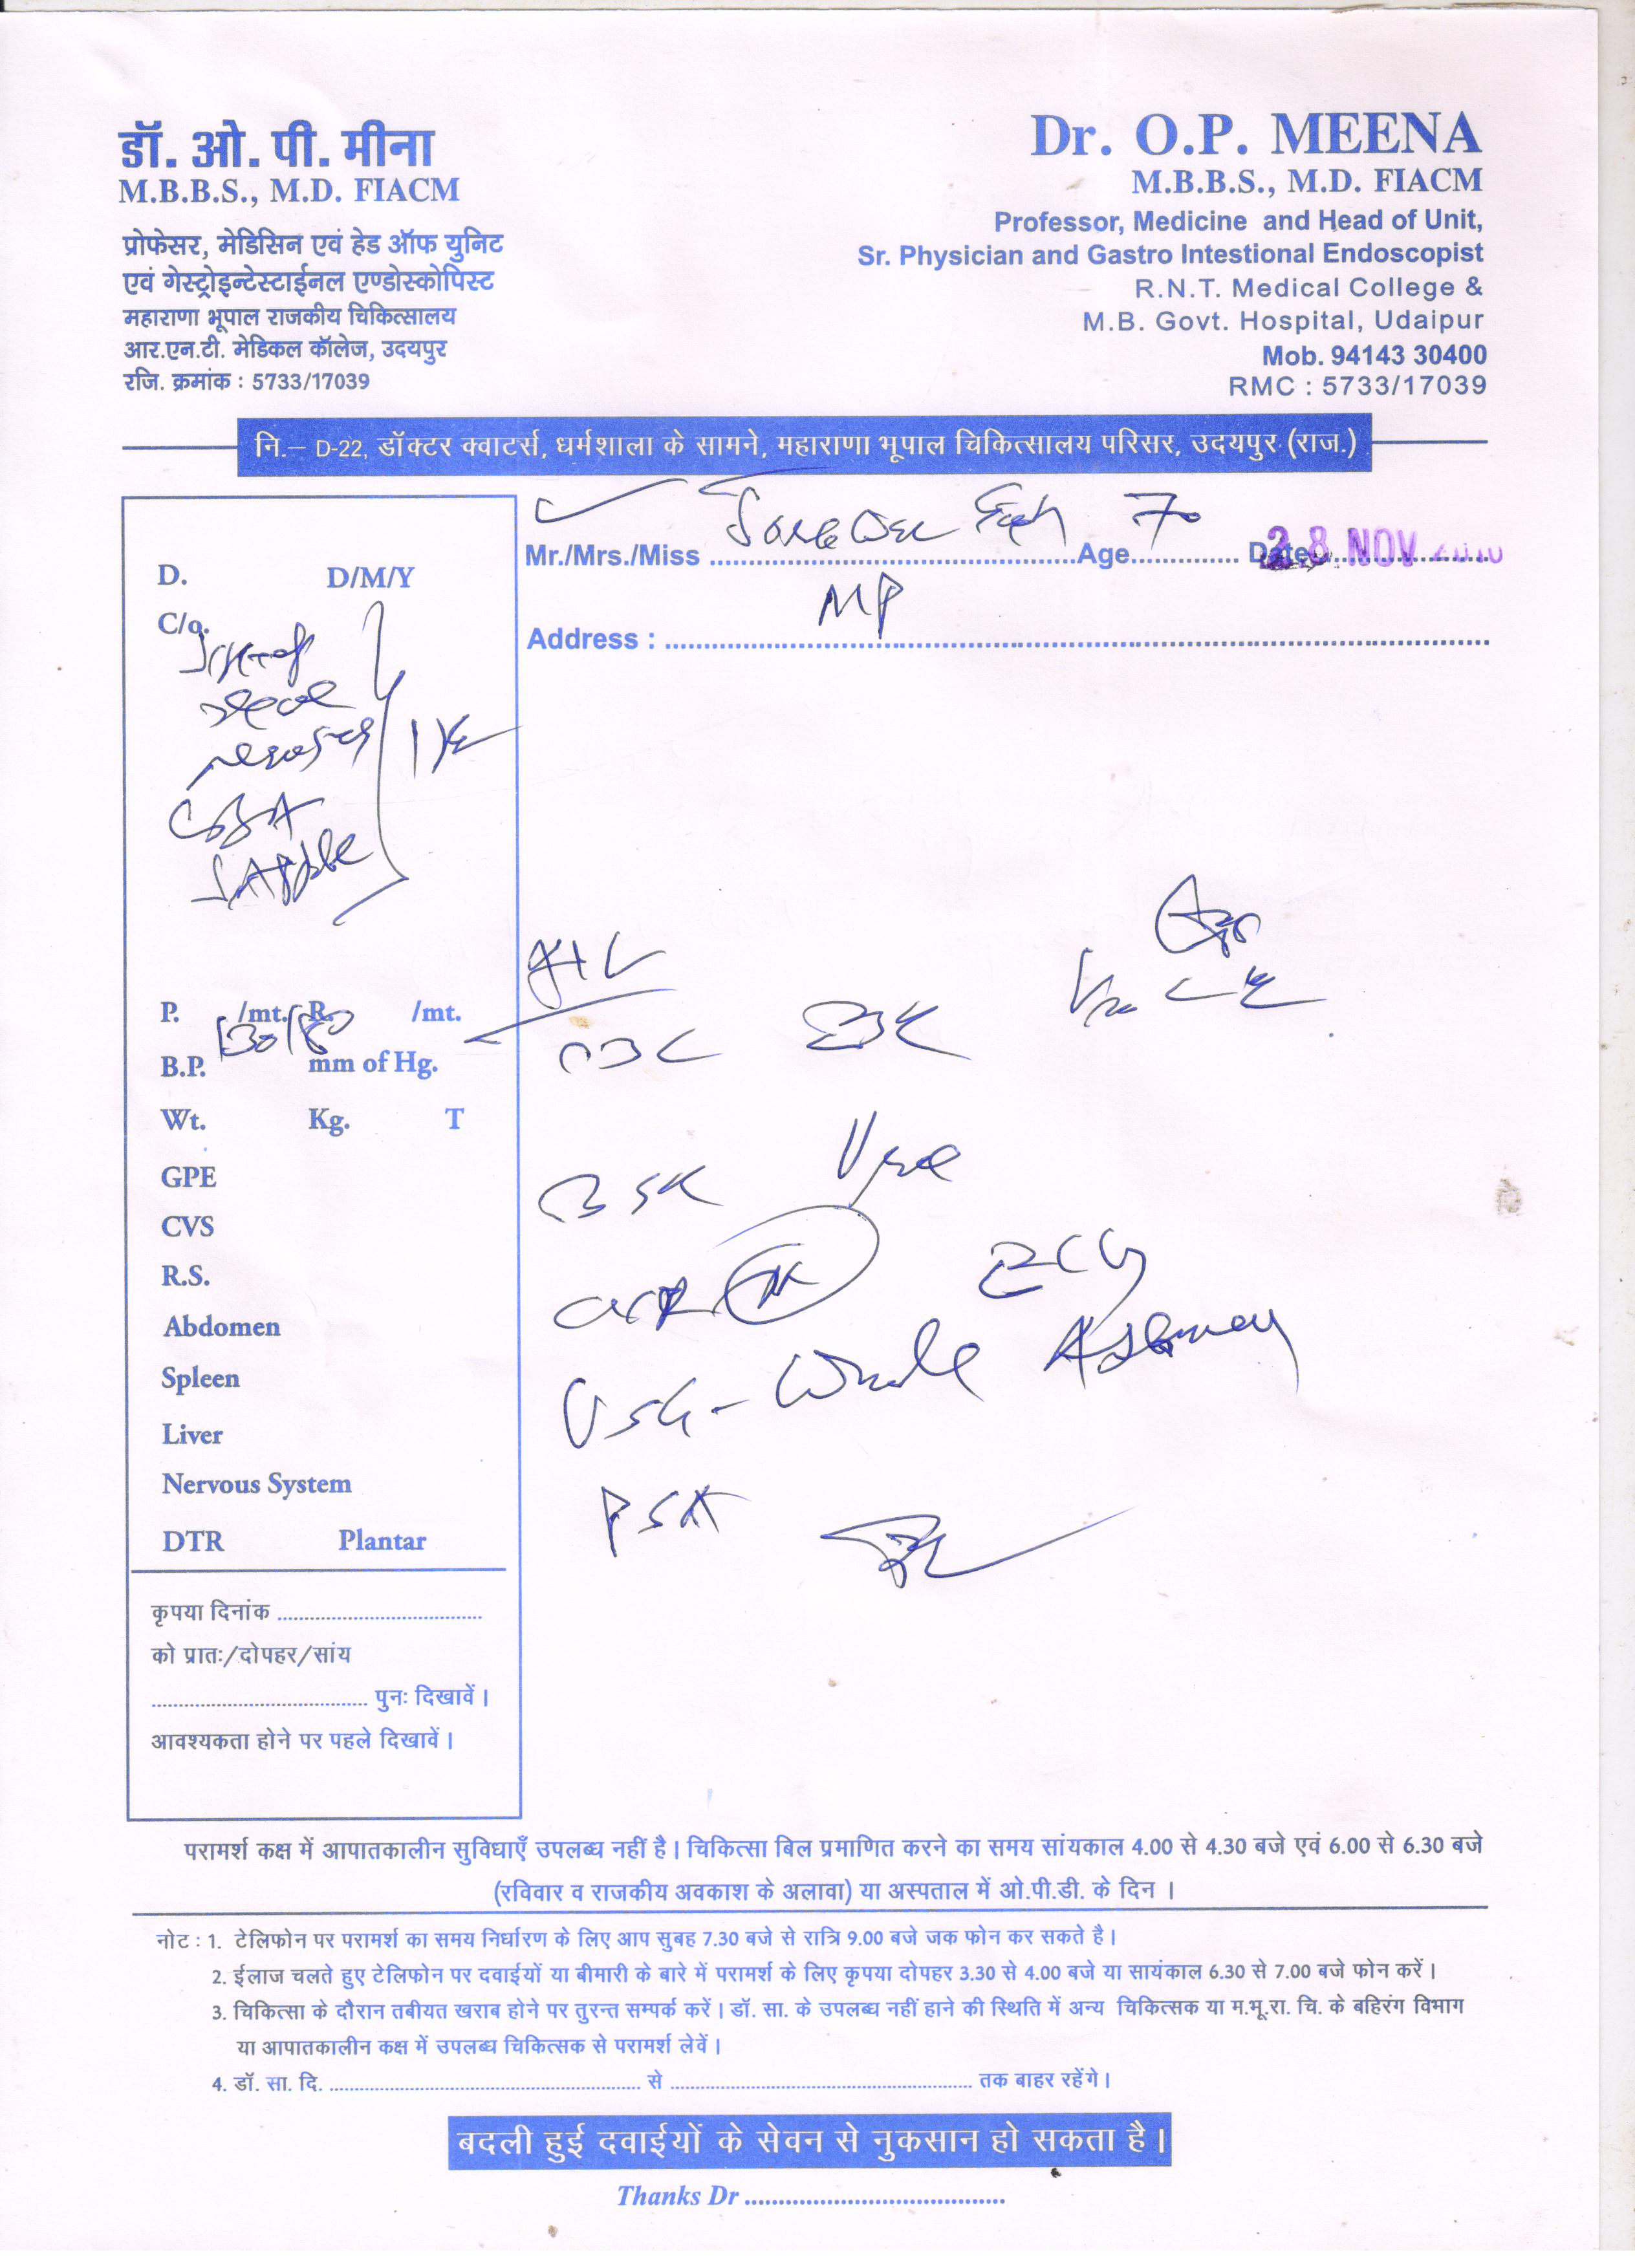 डॉ. ओ. पी. मीना
M.B.B.S., M.D. FIACM
प्रोफेसर, मेडिसिन एवं हेड ऑफ युनिट
एवं गेस्ट्रोइन्टेस्टाईनल एण्डोस्कोपिस्ट
महाराणा भूपाल राजकीय चिकित्सालय
आर.एन.टी. मेडिकल कॉलेज, उदयपुर
रजि. क्रमांक : 5733/17039
Dr. O.P. MEENA
M.B.B.S., M.D. FIACM
Professor, Medicine and Head of Unit,
Sr. Physician and Gastro Intestional Endoscopist
R.N.T. Medical College &
M.B. Govt. Hospital, Udaipur
Mob. 94143 30400
RMC : 5733/17039
नि.– D-22, डॉक्टर क्वाटर्स, धर्मशाला के सामने, महाराणा भूपाल चिकित्सालय परिसर, उदयपुर (राज.)
Mr./Mrs./Miss Age 70 Date 28 NOV
Address : MP
D. D/M/Y
C/o.
P. /mt. R. /mt.
B.P. 130/80 mm of Hg.
Wt. Kg. T
GPE
CVS
R.S.
Abdomen
Spleen
Liver
Nervous System
DTR Plantar
ECG
USG - Whole Abdomen
PSA
कृपया दिनांक
को प्रातः/दोपहर/सांय
पुनः दिखावें।
आवश्यकता होने पर पहले दिखावें।
परामर्श कक्ष में आपातकालीन सुविधाएँ उपलब्ध नहीं है। चिकित्सा बिल प्रमाणित करने का समय सांयकाल 4.00 से 4.30 बजे एवं 6.00 से 6.30 बजे
(रविवार व राजकीय अवकाश के अलावा) या अस्पताल में ओ.पी.डी. के दिन ।
नोट : 1. टेलिफोन पर परामर्श का समय निर्धारण के लिए आप सुबह 7.30 बजे से रात्रि 9.00 बजे जक फोन कर सकते है।
2. ईलाज चलते हुए टेलिफोन पर दवाईयों या बीमारी के बारे में परामर्श के लिए कृपया दोपहर 3.30 से 4.00 बजे या सायंकाल 6.30 से 7.00 बजे फोन करें।
3. चिकित्सा के दौरान तबीयत खराब होने पर तुरन्त सम्पर्क करें। डॉ. सा. के उपलब्ध नहीं हाने की स्थिति में अन्य चिकित्सक या म.भू.रा. चि. के बहिरंग विमाग
या आपातकालीन कक्ष में उपलब्ध चिकित्सक से परामर्श लेवें।
4. डॉ. सा. दि. से तक बाहर रहेंगे।
बदली हुई दवाईयों के सेवन से नुकसान हो सकता है।
Thanks Dr